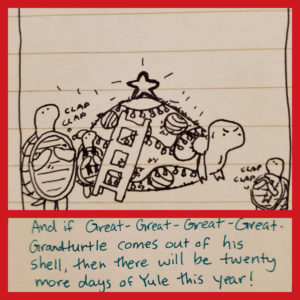 CLAP
CLAP
CLAP
CLAP
And if Great-Great-Great-Great-
Grandturtle comes out of his
shell, then there will be twenty
more days of Yule this year!